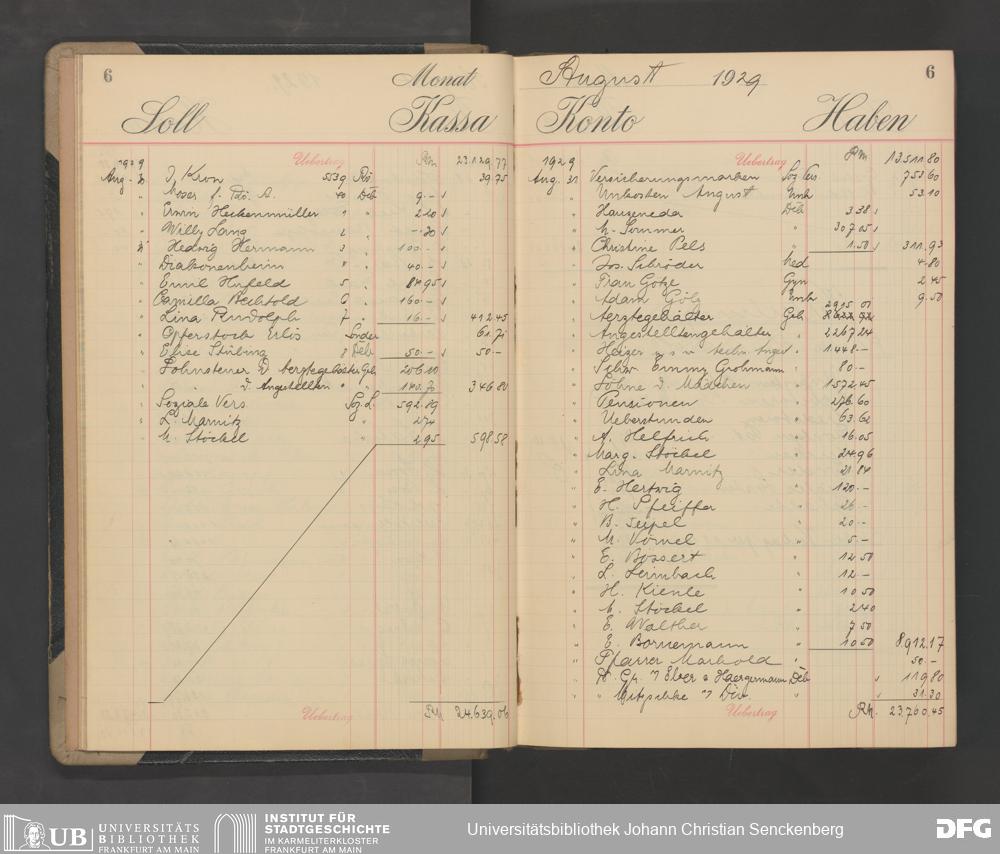 6 Monat
Soll Kassa
1929 Uebertrag Rm 23.129.77
Aug. J. Kron 5539 Rö 39.75
" Moser f. 40 Deb 9.--
" Erwin Heckenmüller 1 " 2.20
" Willy Lang 2 " -.20
" Hedwig Hermann 3 " 100.-
" Diakonenheim " " 40.-
" Emil Hufeld 5 " 84.95
" Camilla Bechtold 6 " 160.-
" Lina Rudolph 7 " 16.- 412.45
" Opferstock Erlös Sonder 61.71
" Elise Stübing 8 Deb 50.- 50.-
" Lohnsteuer d. Aerztegehälter Geh 206.10
" d. Angestellten " " 140.70 346.80
" Soziale Vers. Soz. L. 592.89
" L. Marnitz " 2.74
M. Stöckel " 2.95 598.58
Uebertrag RM 24.639.06
August 1929 6
Konto Haben
1929 Uebertrag Rm 13.511.80
Aug. 31 Versicherungsmarken Soz Vers 753.60
" Unkosten August Unk 53.10
" Hauseneder Deb 3.38
" M. Sommer " 307.05
" Christine Pels " 1.50 311.93
" Jos. Schröder Med 4.80
" Frau Götze Gyn 2.45
" Adam Götz Unk 9.50
" Aerztegehälter Geh 2915.01
" Angestelltengehälter " 2267.24
" Heizer u.s.w. techn. Angest. " 1.448.-
" Schw. Emmy Grohmann " 80.-
" Löhne d. Mädchen " 1572.45
" Pensionen " 276.60
" Ueberstunden " 63.62
" A. Helfrich " 16.05
" Marg. Stöckel " 24.96
" Lina Marnitz " 21.84
" E. Hertwig " 120.-
" H. Pfeiffer " 26.-
" B. Seipel " 20.-
" M. Vömel " 5.-
" E. Bossert " 12.50
" L. Leimbach " 12.-
" H. Kienle " 10.50
" M. Stöckel " 2.40
" E. Walther " 7.50
" E. Bornemann " 10.50 8.912.17
" Pfarrer Marhold " 50.-
" Elver & Haergermann Deb " 119.80
" Nitzschke " Div. " " 31.30
Uebertrag RM. 23.760.45
UB UNIVERSITÄTS
BIBLIOTHEK
FRANKFURT AM MAIN
INSTITUT FÜR
STADTGESCHICHTE
IM KARMELITERKLOSTER
FRANKFURT AM MAIN
Universitätsbibliothek Johann Christian Senckenberg
DFG